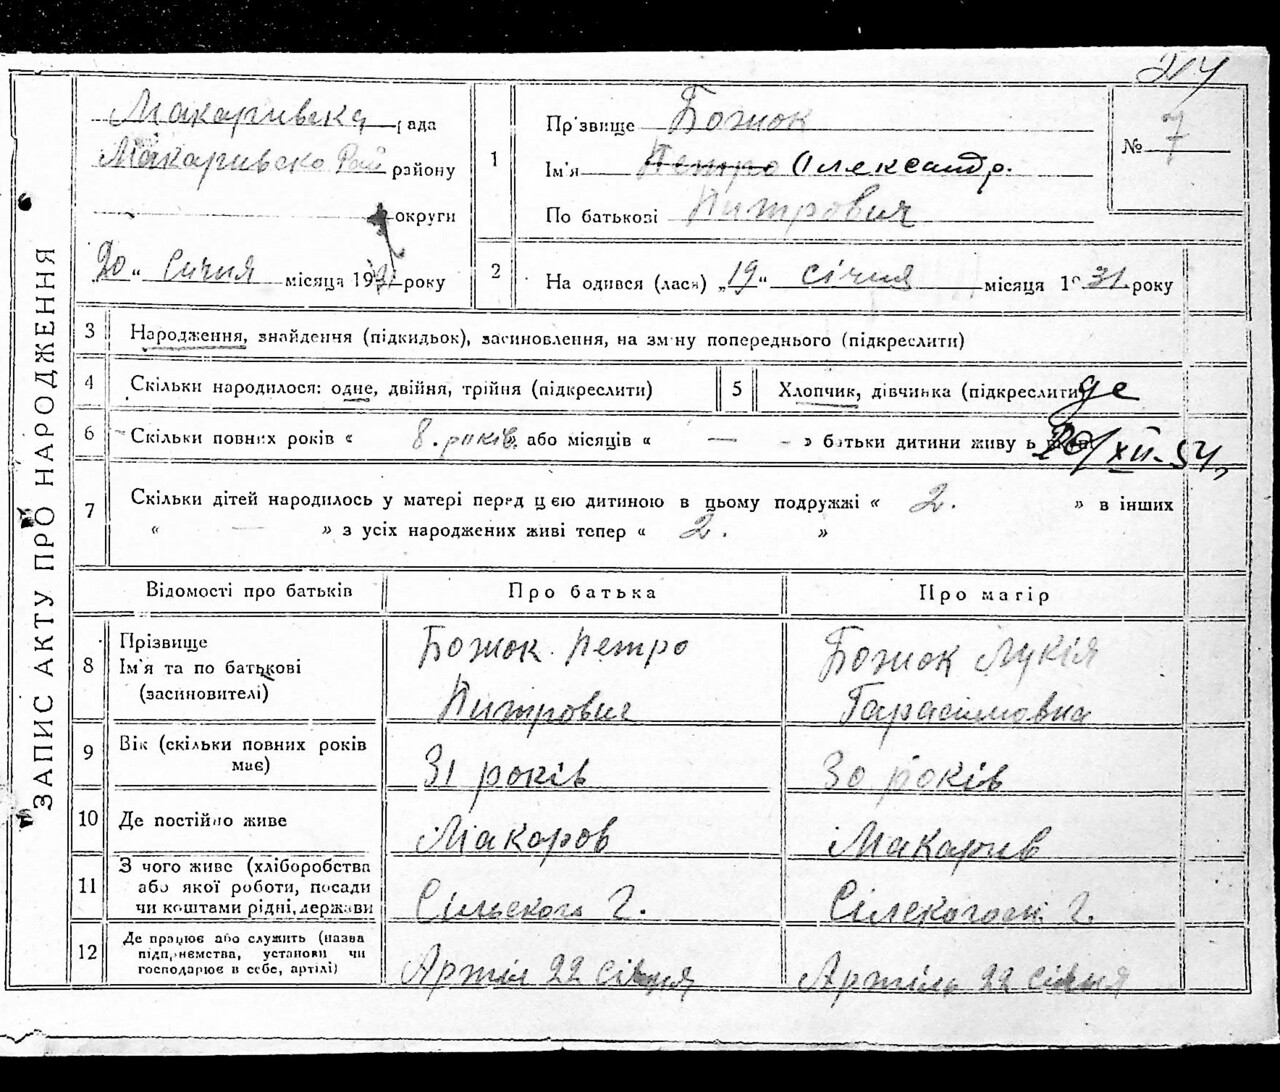 ЗАПИС АКТУ ПРО НАРОДЖЕННЯ
Макаривска рада
Макаривско Рай району
округи
20 „ Січня місяця 1931 року
1
Прізвище Божок
Ім'я Петро Олександр.
По батькові Питрович
№ 7
2
На одився (лася) „19“ січня місяця 1931 року
3 Народження, знайдення (підкидьок), засиновлення, на зміну попереднього (підкреслити)
4 Скільки народилося: одне, двійня, трійня (підкреслити)
5 Хлопчик, дівчинка (підкреслити
6 Скільки повних років « 8. років » або місяців « — » батьки дитини живу ь
20/XII-54,
7 Скільки дітей народилось у матері перед цією дитиною в цьому подружжі « 2. » в інших
« — » з усіх народжених живі тепер « 2. »
Відомості про батьків Про батька Про матір
8 Прізвище
Ім'я та по батькові
(засиновителі)
Божок Петро
Питрович
Божок Лукія
Гарасимовна
9 Вік (скільки повних років
має)
31 років
30 років
10 Де постійно живе Макоров Макарив
11 З чого живе (хліборобства
або якої роботи, посади
чи коштами рідні, держави
Сільского Г.
Г.
12 Де працює або служить (назва
підприємства, установи чи
господарює в себе, артілі)
Артіл 22 січня
Артіль 22 січня